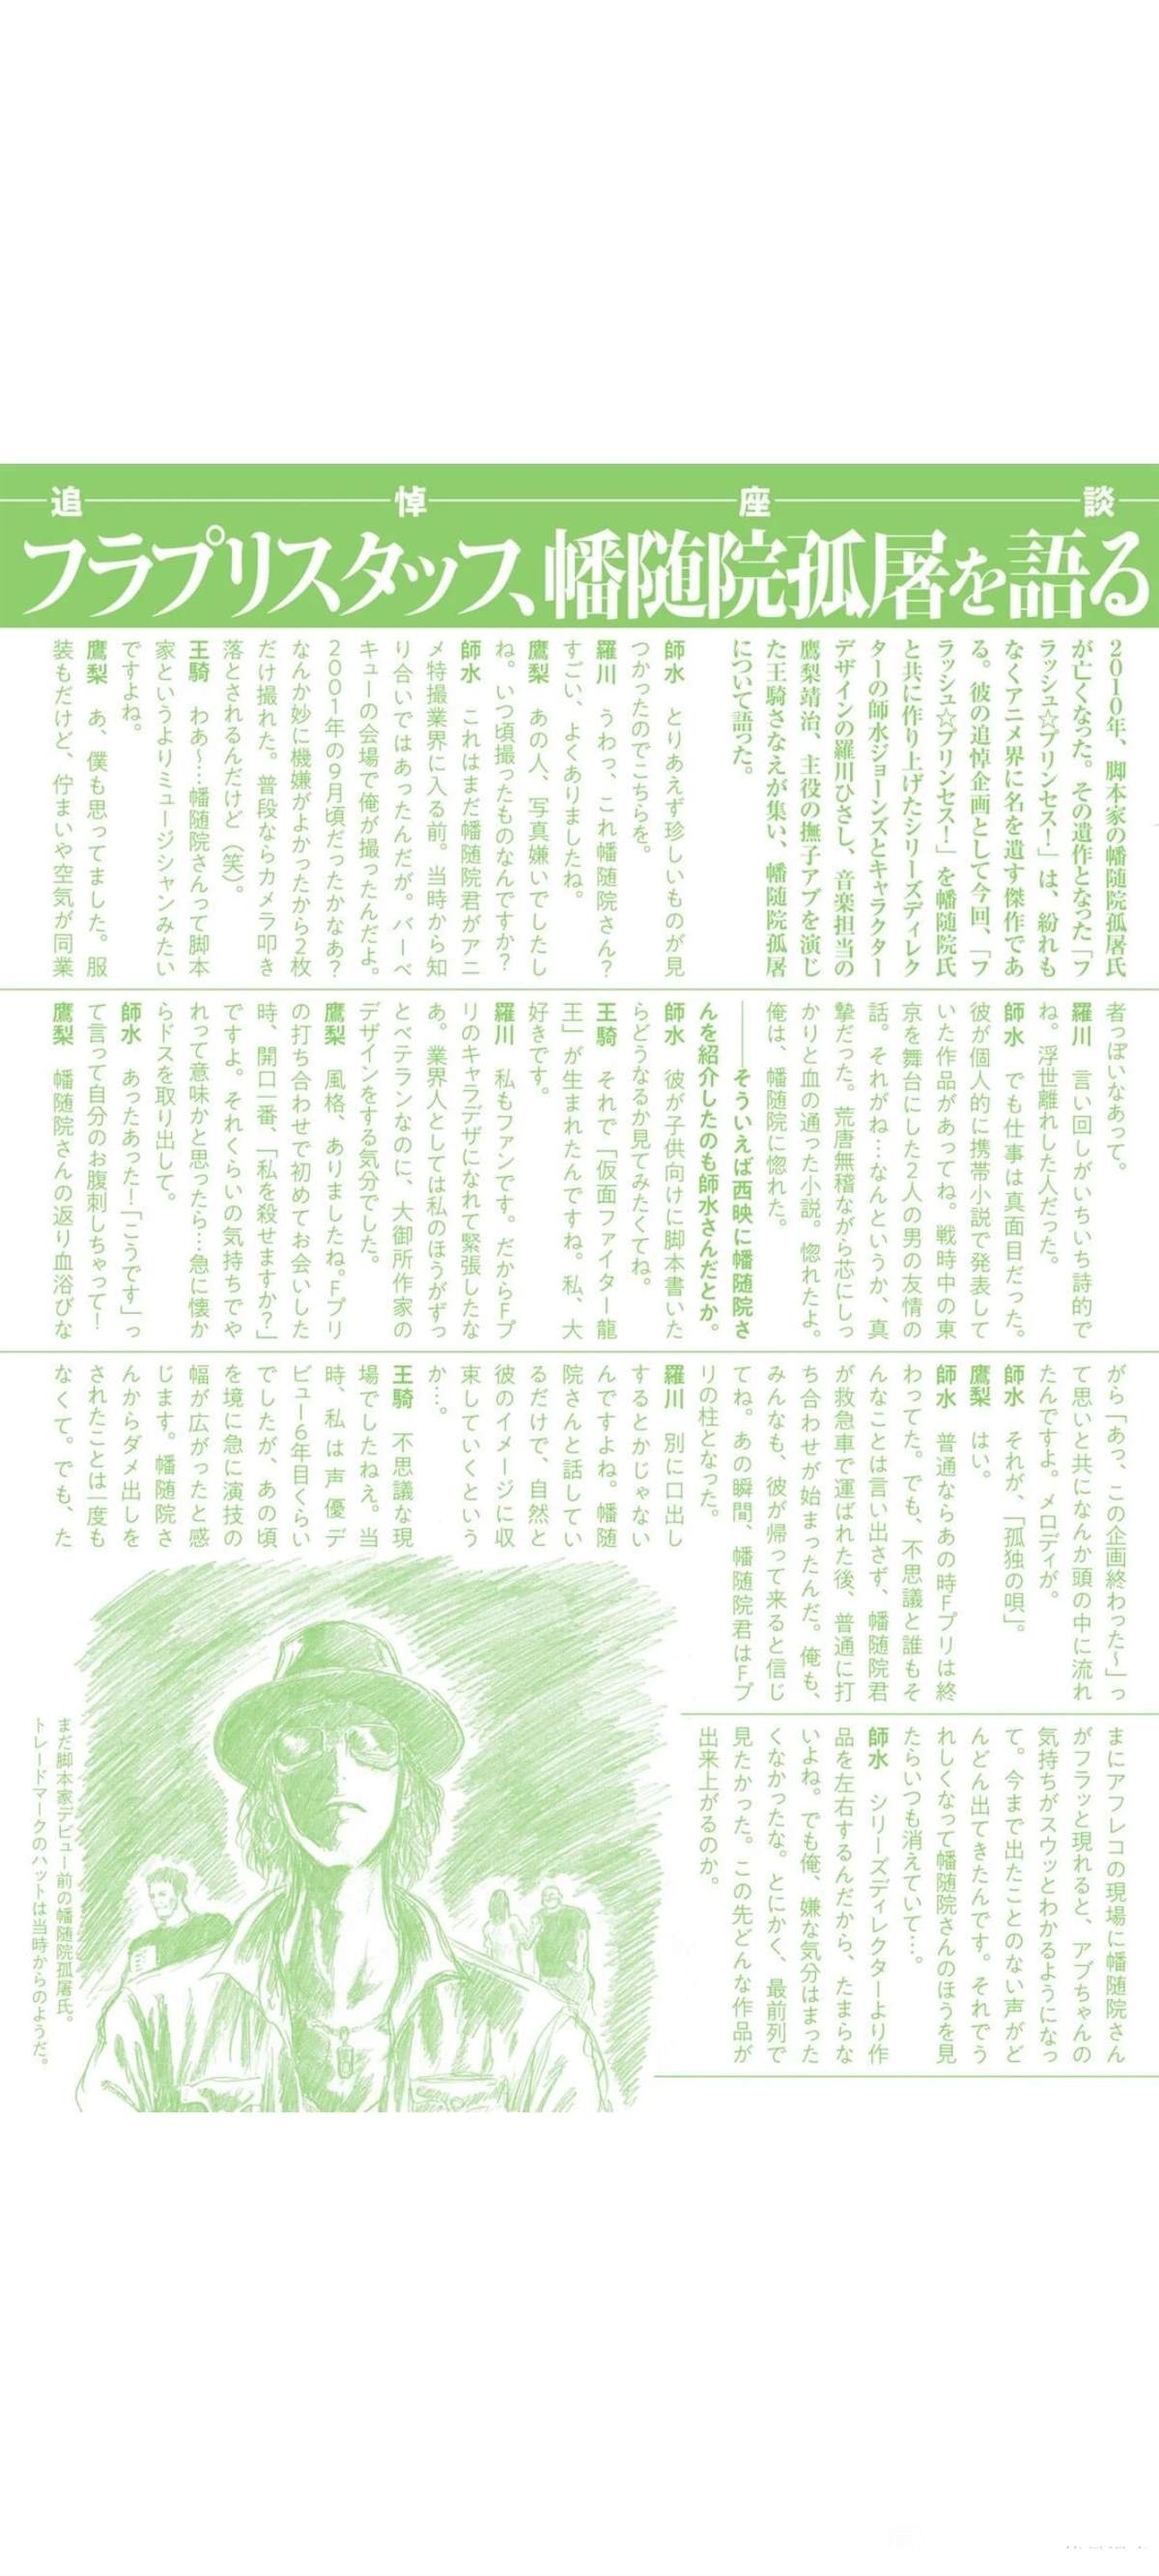 追悼座談
フラプリスタッフ、幡随院孤屠を語る
2010年、脚本家の幡随院孤屠氏
が亡くなった。その遺作となった「フ
ラッシュ☆プリンセス!」は、紛れも
なくアニメ界に名を遺す傑作であ
る。彼の追悼企画として今回、「フ
ラッシュ☆プリンセス!」を幡随院氏
と共に作り上げたシリーズディレク
ターの師水ジョーンズとキャラクター
デザインの羅川ひさし、音楽担当の
鷹梨靖治、主役の撫子アブを演じ
た王騎さなえが集い、幡随院孤屠
について語った。
師水 とりあえず珍しいものが見
つかったのでこちらを。
羅川 うわっ、これ幡随院さん?
すごい、よくありましたね。
鷹梨 あの人、写真嫌いでしたし
ね。いつ頃撮ったものなんですか?
師水 これはまだ幡随院君がアニ
メ特撮業界に入る前。当時から知
り合いではあったんだが。バーベ
キューの会場で俺が撮ったんだよ。
2001年の9月頃だったかなあ?
なんか妙に機嫌がよかったから2枚
だけ撮れた。普段ならカメラ叩き
落とされるんだけど(笑)。
王騎 わあ〜…幡随院さんって脚本
家というよりミュージシャンみたい
ですよね。
鷹梨 あ、僕も思ってました。服
装もだけど、佇まいや空気が同業
者っぽいなあって。
羅川 言い回しがいちいち詩的で
ね。浮世離れした人だった。
師水 でも仕事は真面目だった。
彼が個人的に携帯小説で発表して
いた作品があってね。戦時中の東
京を舞台にした2人の男の友情の
話。それがね…なんというか、真
摯だった。荒唐無稽ながら芯にしっ
かりと血の通った小説。惚れたよ。
俺は、幡随院に惚れた。
――そういえば西映に幡随院さ
んを紹介したのも師水さんだとか。
師水 彼が子供向けに脚本書いた
らどうなるか見てみたくてね。
王騎 それで「仮面ファイター龍
王」が生まれたんですね。私、大
好きです。
羅川 私もファンです。だからFプ
リのキャラデザになれて緊張したな
あ。業界人としては私のほうがずっ
とベテランなのに、大御所作家の
デザインをする気分でした。
鷹梨 風格、ありましたね。Fプリ
の打ち合わせで初めてお会いした
時、開口一番、「私を殺せますか?」
ですよ。それくらいの気持ちでや
れって意味かと思ったら…急に懐か
らドスを取り出して。
師水 あったあった!「こうです」っ
て言って自分のお腹刺しちゃって!
鷹梨 幡随院さんの返り血浴びな
がら「あっ、この企画終わった〜」っ
て思いと共になんか頭の中に流れ
たんですよ。メロディが。
師水 それが、「孤独の唄」。
鷹梨 はい。
師水 普通ならあの時Fプリは終
わってた。でも、不思議と誰もそ
んなことは言い出さず、幡随院君
が救急車で運ばれた後、普通に打
ち合わせが始まったんだ。俺も、
みんなも、彼が帰って来ると信じ
てね。あの瞬間、幡随院君はFプ
リの柱となった。
羅川 別に口出し
するとかじゃない
んですよね。幡随
院さんと話してい
るだけで、自然と
彼のイメージに収
束していくという
か…。
王騎 不思議な現
場でしたねえ。当
時、私は声優デ
ビュー6年目くらい
でしたが、あの頃
を境に急に演技の
幅が広がったと感
じます。幡随院さ
んからダメ出しを
されたことは一度も
なくて。でも、た
まにアフレコの現場に幡随院さん
がフラッと現れると、アブちゃんの
気持ちがスウッとわかるようになっ
て。今まで出たことのない声がど
んどん出てきたんです。それでう
れしくなって幡随院さんのほうを見
たらいつも消えていて…。
師水 シリーズディレクターより作
品を左右するんだから、たまらな
いよね。でも俺、嫌な気分はまった
くなかったな。とにかく、最前列で
見たかった。この先どんな作品が
出来上がるのか。
まだ脚本家デビュー前の幡随院孤屠氏。
トレードマークのハットは当時からのようだ。